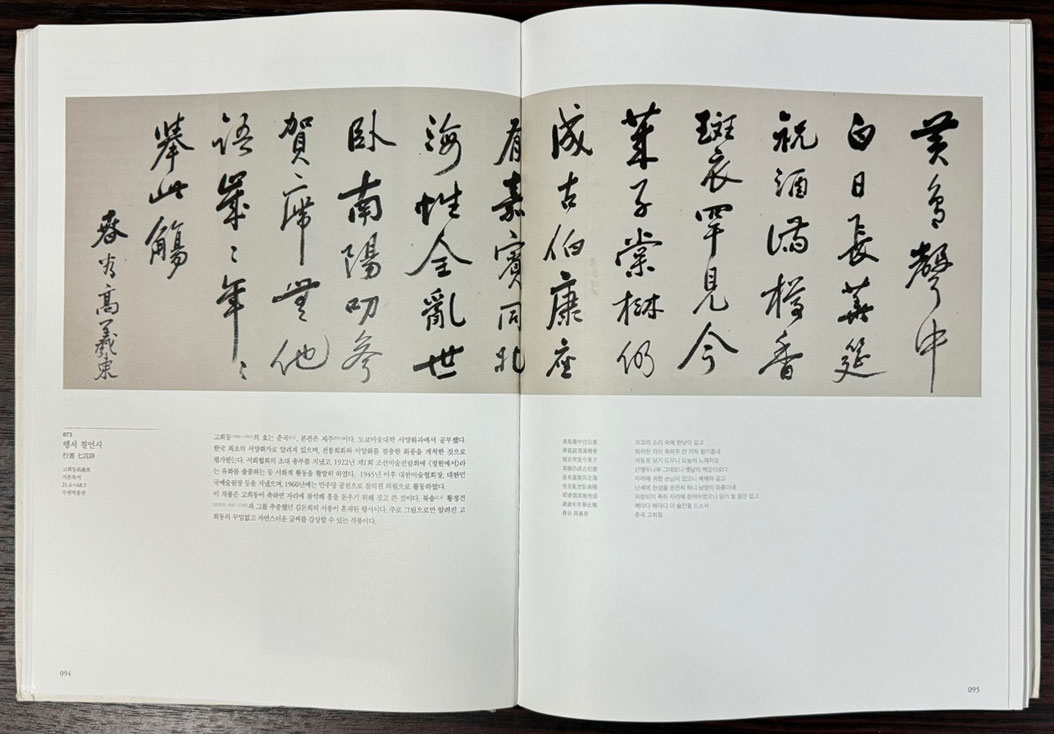 黃鳥聲中
白日長華筵
祝酒滿樽香
斑衣罕見今
萊子棠棣仍
成古伯康座
有嘉賓同北
海性全亂世
臥南陽叨參
賀席無他
語歲〻年〻
擧此觴
春谷高羲東
073
행서 칠언시
行書 七言詩
고희동高羲東
지본묵서
수원박물관
고희동의 호는 춘곡, 본관은 제주이다. 도쿄미술대학 서양화과에서 공부했다.
한국 최초의 서양화가로 알려져 있으며, 전통회화와 서양화를 절충한 화풍을 개척한 것으로
평가받는다. 서화협회의 초대 총무를 지냈고, 1922년 제1회 조선미술전람회에 《정원에서》라
는 유화를 출품하는 등 서화계 활동을 활발히 하였다. 1945년 이후 대한미술협회장, 대한민
국예술원장 등을 지냈으며, 1960년에는 민주당 공천으로 참의원 의원으로 활동하였다.
이 작품은 고희동이 축하연 자리에 참석해 흥을 돋우기 위해 짓고 쓴 것이다. 북송 황정견
과 그를 추종했던 김돈희의 서풍이 혼재된 행서이다. 주로 그림으로만 알려진 고
희동의 꾸밈없고 자연스러운 글씨를 감상할 수 있는 작품이다.
094
黃鳥聲中白日長
華筵祝酒滿樽香
斑衣罕見今萊子
棠棣仍成古伯康
座有嘉賓同北海
性全亂世臥南陽
叨參賀席無他語
歲歲年年擧此觴
春谷 高羲東
꾀꼬리 소리 속에 한낮이 길고
화려한 자리 축하주 잔 가득 향기롭네
색동옷 보기 드무니 오늘의 노래자요
산앵두나무 그대로니 옛날의 백강이로다
자리에 귀한 손님이 있으니 북해와 같고
난세에 천성을 온전히 하니 남양의 와룡이네
외람되이 축하 자리에 참여하였으니 달리 할 말은 없고
해마다 해마다 이 술잔을 드소서
춘곡 고희동
095